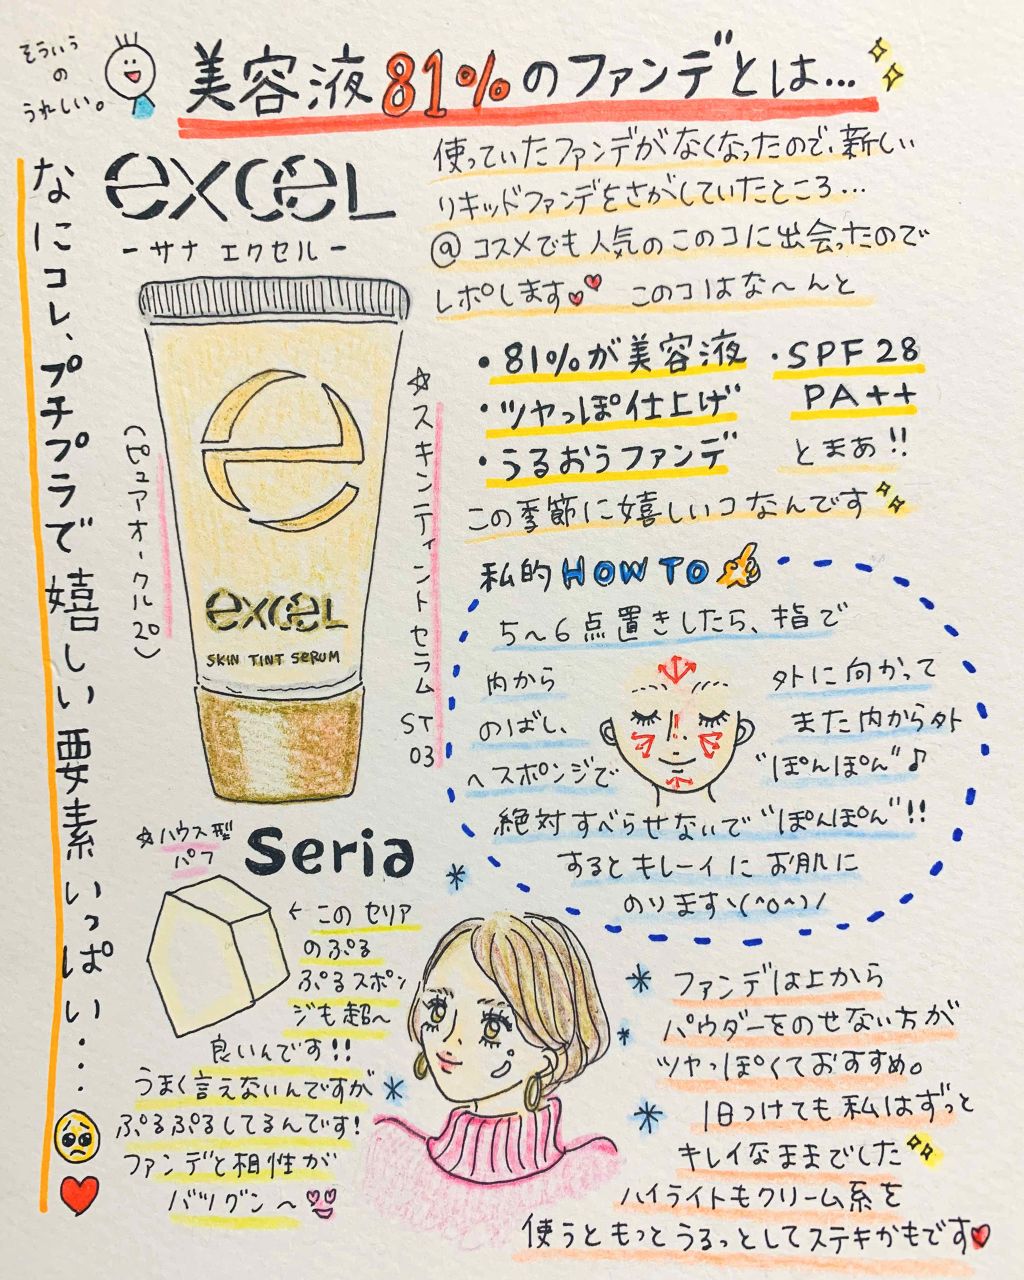 そういう
の
うれしい。
美容液81%のファンデとは...
なにコレ、プチプラで嬉しい要素いっぱい...
excel
-サナ エクセル-
使っていたファンデがなくなったので、新しい
リキッドファンデをさがしていたところ...
@コスメでも人気のこのコに出会ったので
レポします このコはな〜んと
・81%が美容液
・ツヤっぽ仕上げ
・うるおうファンデ
・SPF28
PA++
とまあ!!
この季節に嬉しいコなんです
☆スキンティントセラム
ST
03
(ピュアオークル20)
e
excel
SKIN TINT SERUM
私的HOW TO
5〜6点置きしたら、指で
内から
外に向かって
のばし、
また内から外
へスポンジで
"ぽんぽん"♪
絶対すべらせないで"ぽんぽん"!!
するとキレーイにお肌に
のりますヽ(^o^)ノ
☆ハウス型
パフ
Seria
←このセリア
のぷる
ぷるスポン
ジも超〜
良いんです!!
うまく言えないんですが
ぷるぷるしてるんです!
ファンデと相性が
バツグン〜
ファンデは上から
パウダーをのせない方が
ツヤっぽくておすすめ。
1日つけても私はずっと
キレイなままでした
ハイライトもクリーム系を
使うともっとうるっとしてステキかもです